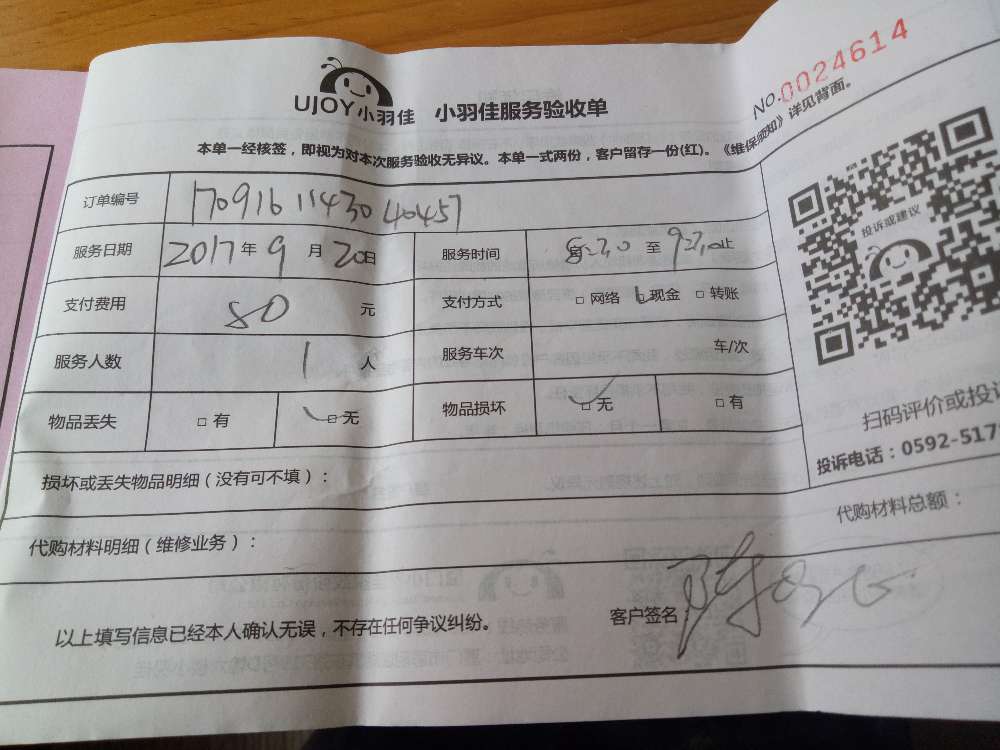 UJOY小羽佳 小羽佳服务验收单
NO.0024614
本单一经核签，即视为对本次服务验收无异议。本单一式两份，客户留存一份(红)。《维保须知》详见背面。
订单编号 1709161143040457
服务日期 2017年9月20日 服务时间 至 止
投诉或建议
支付费用 80 元 支付方式 □ 网络 □ 现金 □ 转账
服务人数 1 人 服务车次 车/次
物品丢失 □ 有 □ 无 物品损坏 □ 无 □ 有
扫码评价或投诉
投诉电话：0592-517
损坏或丢失物品明细（没有可不填）：
代购材料明细（维修业务）： 代购材料总额：
以上填写信息已经本人确认无误，不存在任何争议纠纷。 客户签名：